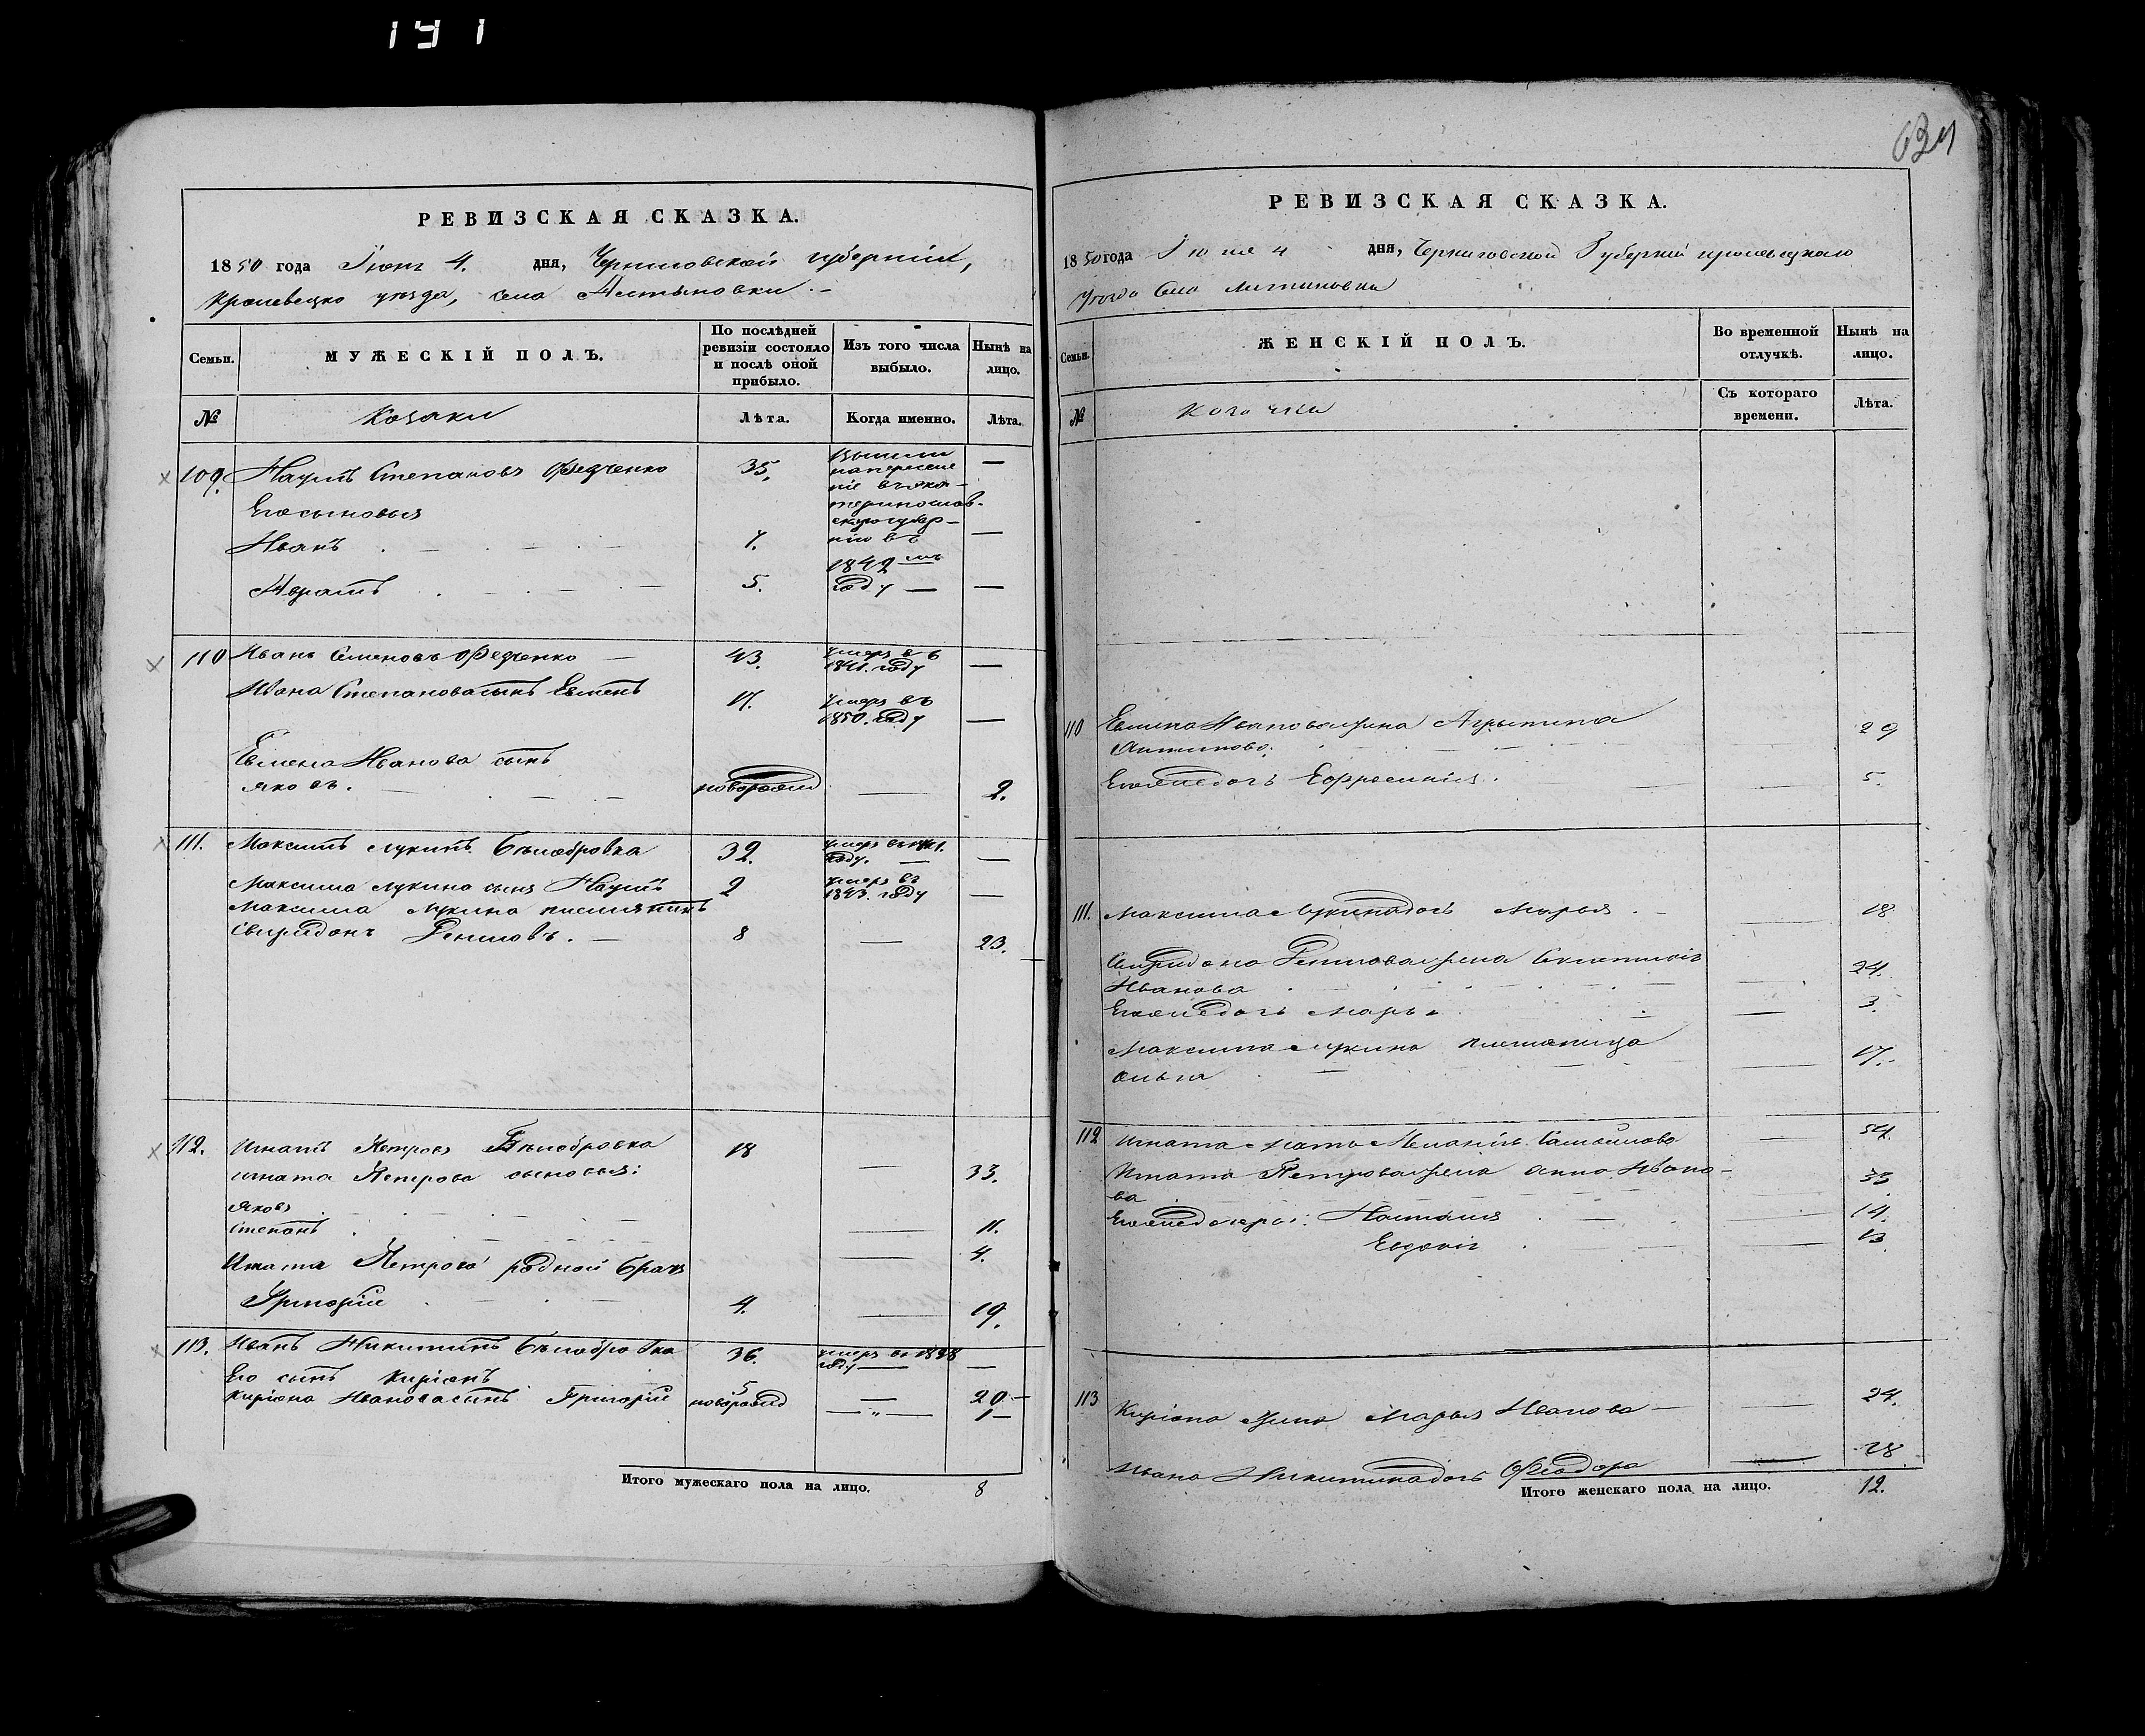 191
РЕВИЗСКАЯ СКАЗКА.
1850 года Іюня 4. дня, Черниговской губерніи,
Кролевецко уезда, села
МУЖЕСКІЙ ПОЛЪ.
Семьи.
По послѣдней ревизіи состояло и послѣ оной прибыло.
Изъ того числа выбыло.
Нынѣ на лицо.
№ Козаки Лѣта. Когда именно. Лѣта.
109. Наумъ Степановъ Федченко 35. —
Его сыновья
Иванъ 7. —
Абрамъ 5. 1842 году — —
110 Иванъ Семеновъ Федченко — 43. умеръ въ 1841. году —
Ивана Степанова сынъ Евменъ 17. умеръ въ 1850. году —
Евмена Иванова сынъ
Яковъ. новорожд — 2.
111. Максимъ Лукинъ Бѣлобровка 32. умеръ въ 1841. году. — —
Максима Лукина сынъ Наумъ 2 умеръ въ 1843. году —
Максима Лукина племянникъ
Свиридонъ 8 — 23.
112. Игнатъ Петровъ Бѣлобровка 18 — 33.
Игната Петрова сыновья:
Яковъ — 11.
Степанъ — 4.
Игната Петрова родной братъ
Григорій 4. — 19.
113. Иванъ Никитинъ Бѣлобровка 36. умеръ въ 1838 году — —
Его сынъ Киріонъ 5 — 20 —
Киріона Иванова сынъ Григорій новорожд — „ — 1 —
Итого мужескаго пола на лицо. 8
РЕВИЗСКАЯ СКАЗКА.
1850 года Іюня 4 дня, Черниговской Губерніи
Уезда Села
Семьи. ЖЕНСКІЙ ПОЛЪ. Во временной отлучкѣ. Нынѣ на лицо.
№ Козачки Съ котораго времени. Лѣта.
110 Евмена Иванова жена Агрыпина 29
Антипова
Его же дочь Ефросинія. — 5.
111. Максима Лукина дочь Марья. — 18
Свиридона жена
Иванова — 24.
Его же дочь Марья — 3.
Максима Лукина племяница
Ольга — 17.
112 Игната мать Меланія Самойлова — 54.
Игната Петрова жена Анна Ивано-
ва 35
Его же дочери: Наталія — 14.
Евдокія — 13
113 Киріона жена Марья Иванова — 24.
Ивана Никитина дочь Феодора — 28
Итого женскаго пола на лицо. 12.